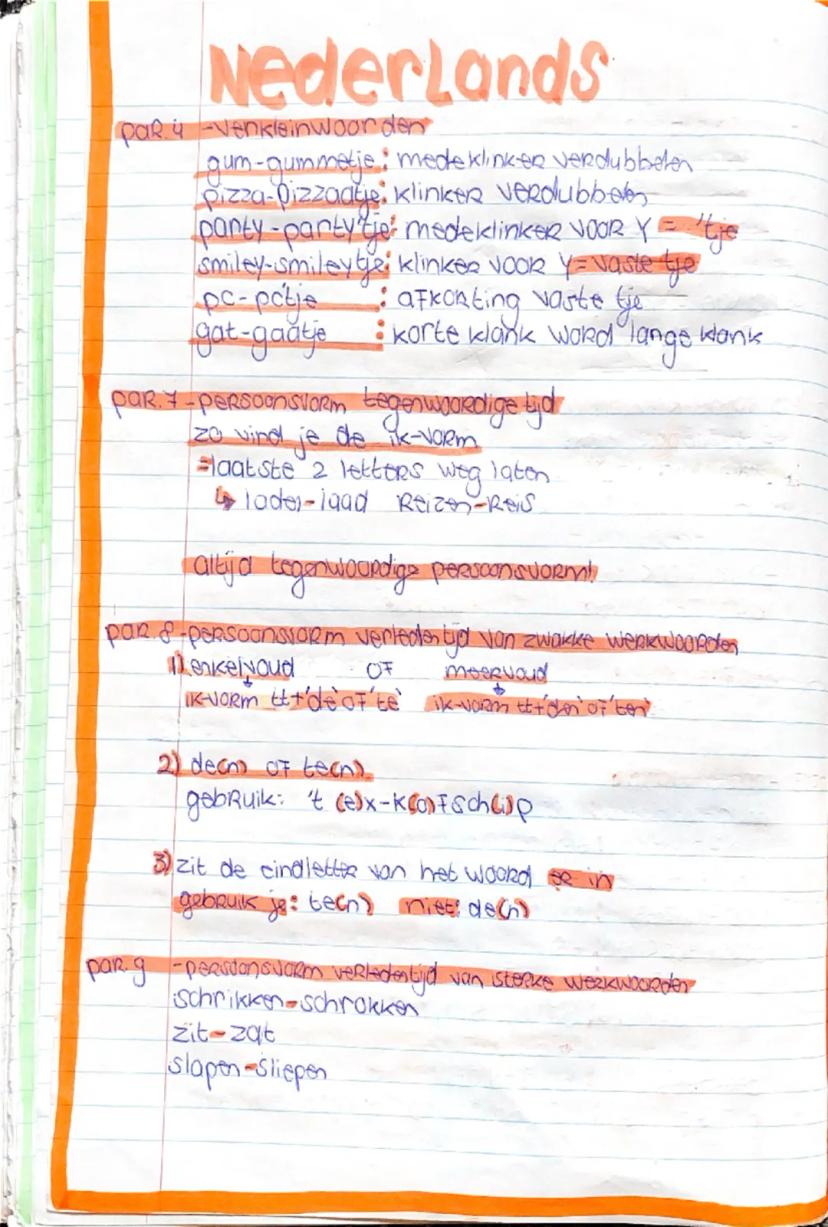 Nederlands
par. 4 -verkleinwoorden
gum-gummetje: medeklinker verdubbelen
pizza-pizzaatje: klinker verdubbelen
party-party'tje: medeklinker voor y = 'tje
smiley-smileytje: klinker voor y = vaste tje
pc-pc'tje : afkorting vaste tje
gat-gaatje : korte klank word lange klank
par. 7 -persoonsvorm tegenwoordige tijd
zo vind je de ik-vorm
=laatste 2 letters weg laten
↳ laden-laad Reizen-Reis
altijd tegenwoordige persoonsvorm!
par. 8 -persoonsvorm verleden tijd van zwakke werkwoorden
1) enkelvoud of meervoud
ik-vorm tt+'de' of 'te' ik-vorm tt+'den' of 'ten'
2) de(n) of te(n)
gebruik: 't (e)x-k(o)fsch(i)p
3) zit de eindletter van het woord er in
gebruik je: te(n) niet: de(n)
par. 9 -persoonsvorm verledentijd van sterke werkwoorden
schrikken-schrokken
zit-zat
slapen-sliepen